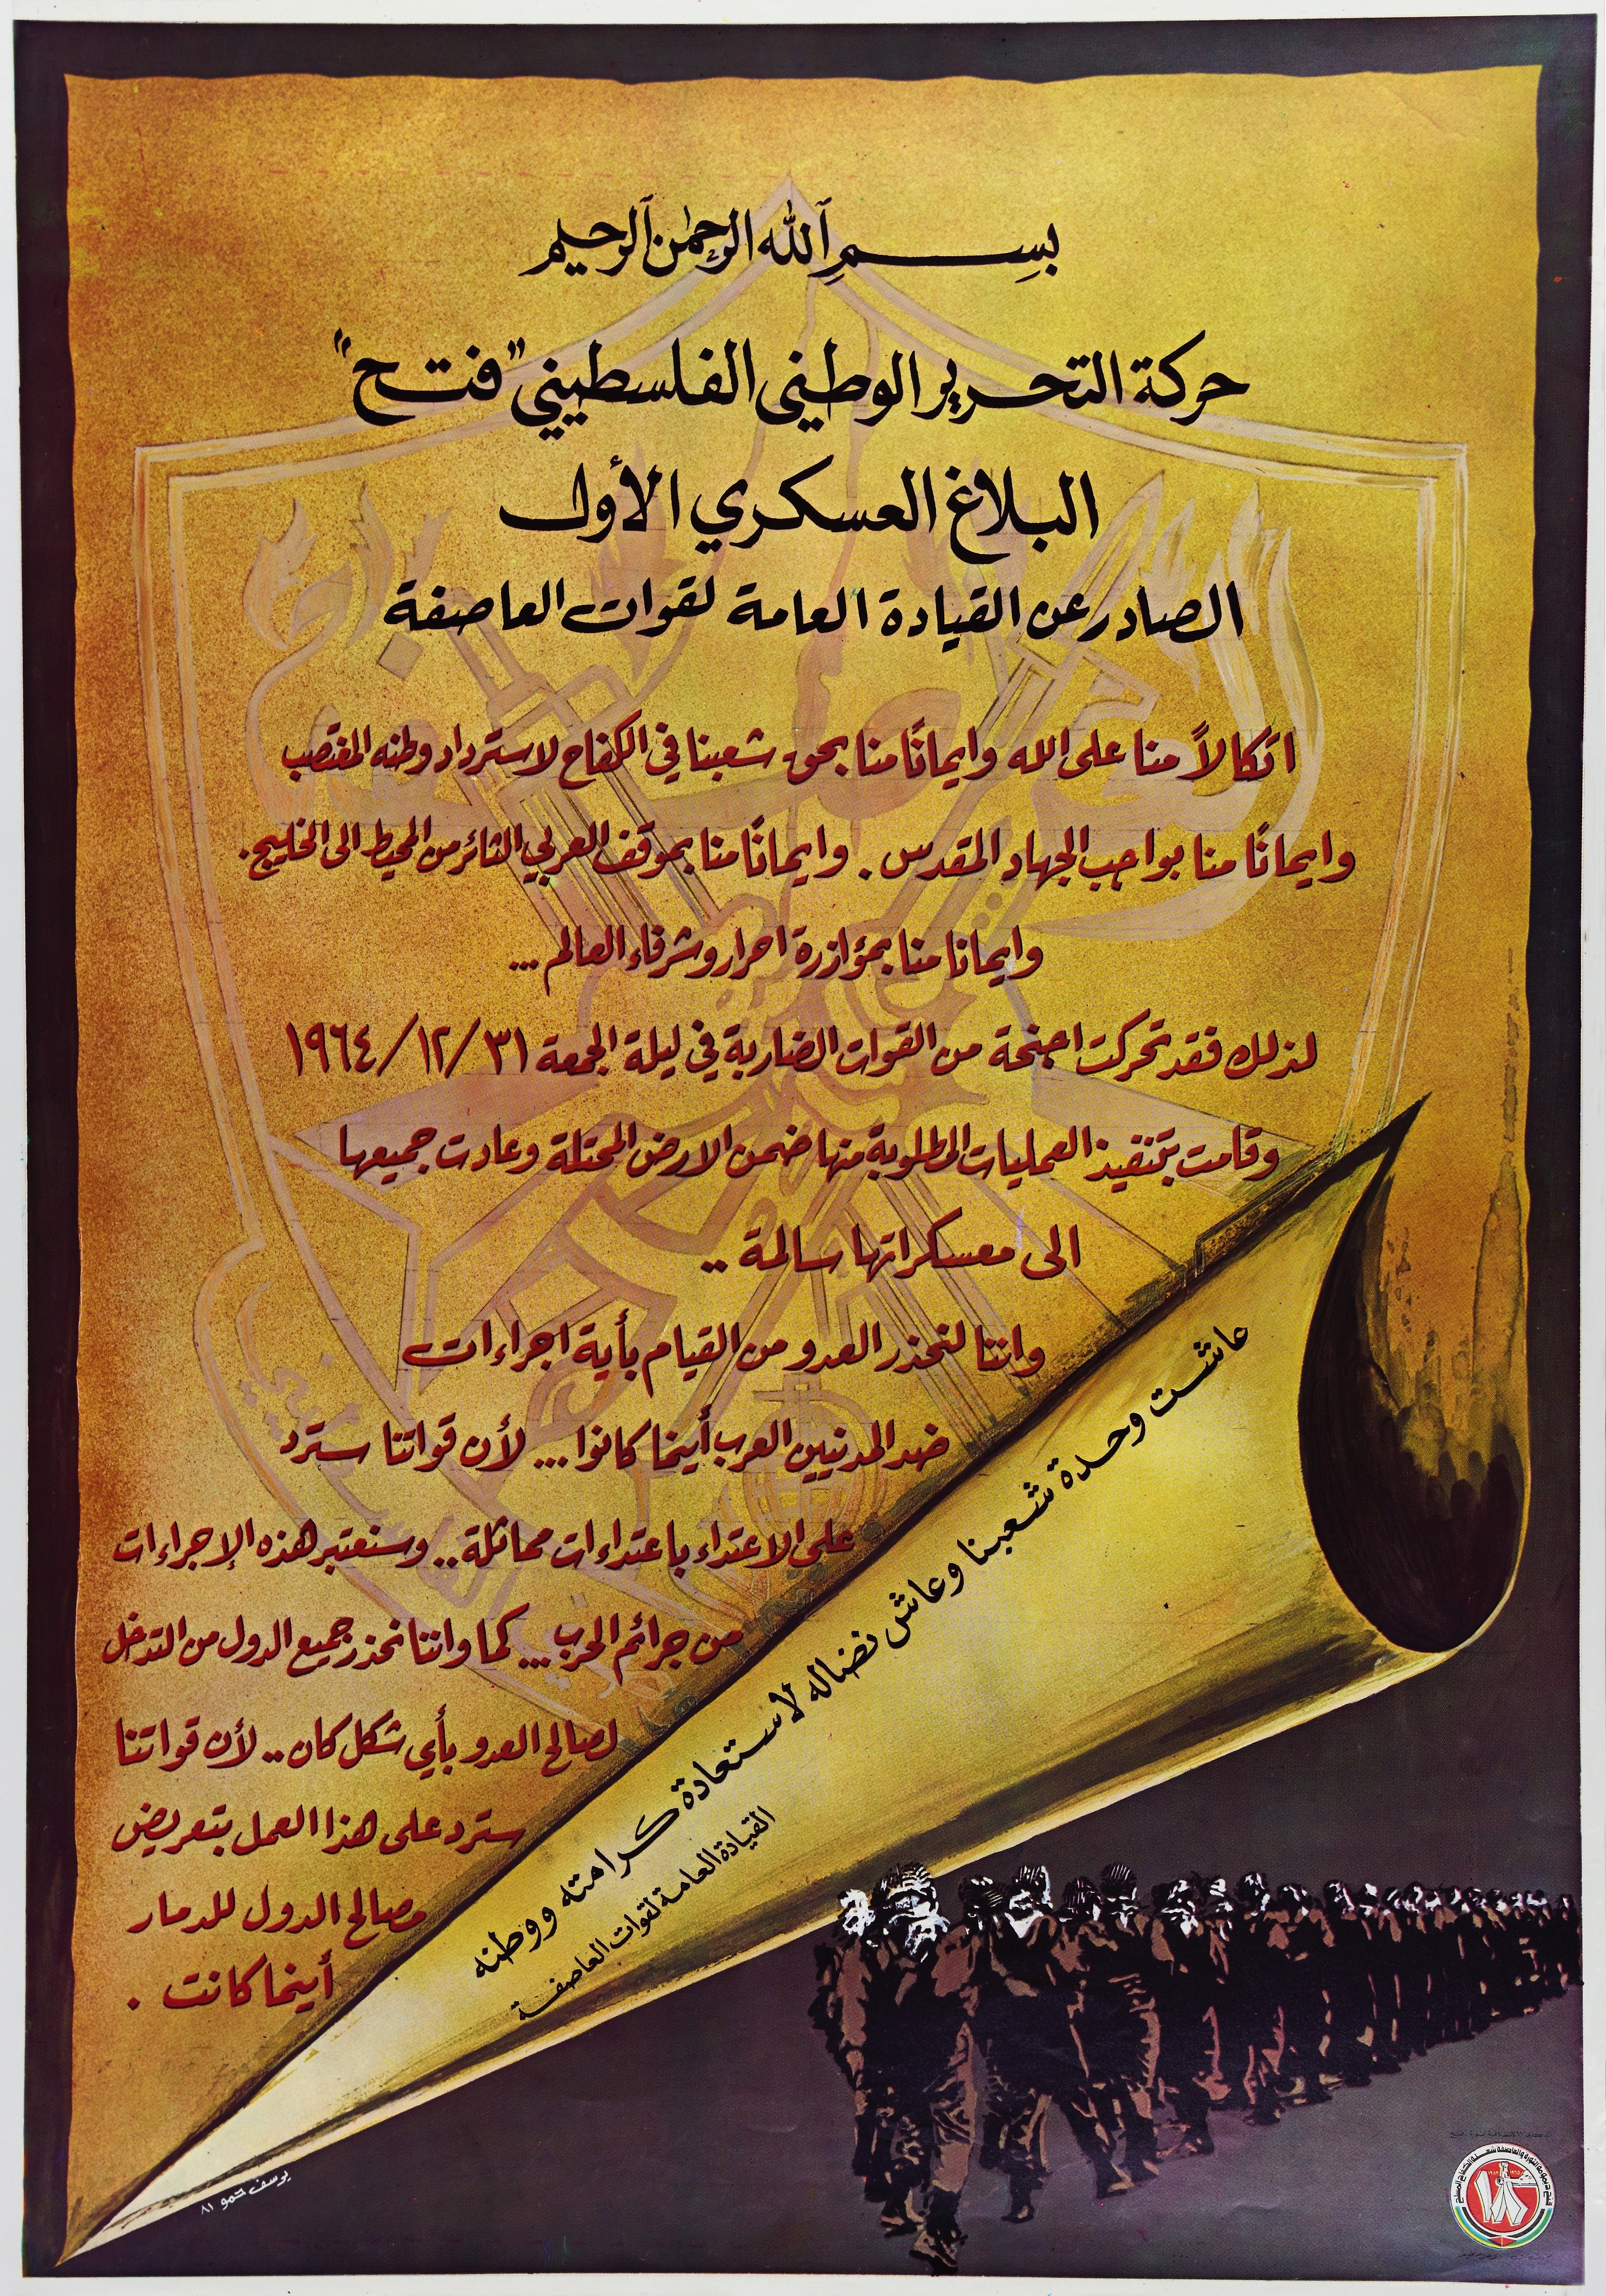 بسم الله الرحمن الرحيم
حركة التحرير الوطني الفلسطيني "فتح"
البلاغ العسكري الأول
الصادر عن القيادة العامة لقوات العاصفة
اتكالاً منا على الله وايمانًا منا بحق شعبنا في الكفاح لاسترداد وطنه المغتصب
وايمانًا منا بواجب الجهاد المقدس . وايمانًا منا بموقف العربي الثائر من المحيط الى الخليج .
وايمانا منا بمؤازرة احرار وشرفاء العالم ...
لذلك فقد تحركت اجنحة من القوات الضاربة في ليلة الجمعة ٣١/١٢/١٩٦٤
وقامت بتنفيذ العمليات المطلوبة منها ضمن الارض المحتلة وعادت جميعها
الى معسكراتها سالمة ..
واننا لنحذر العدو من القيام بأية اجراءات
ضد المدنيين العرب أينما كانوا ... لأن قواتنا سترد
على الاعتداء باعتداءات مماثلة .. وسنعتبر هذه الإجراءات
من جرائم الحرب ... كما واننا نحذر جميع الدول من التدخل
لصالح العدو بأي شكل كان .. لأن قواتنا
سترد على هذا العمل بتعريض
مصالح الدول للدمار
أينما كانت .
عاشت وحدة شعبنا وعاش نضاله لاستعادة كرامته ووطنه
القيادة العامة لقوات العاصفة
يوسف حمو ٨١